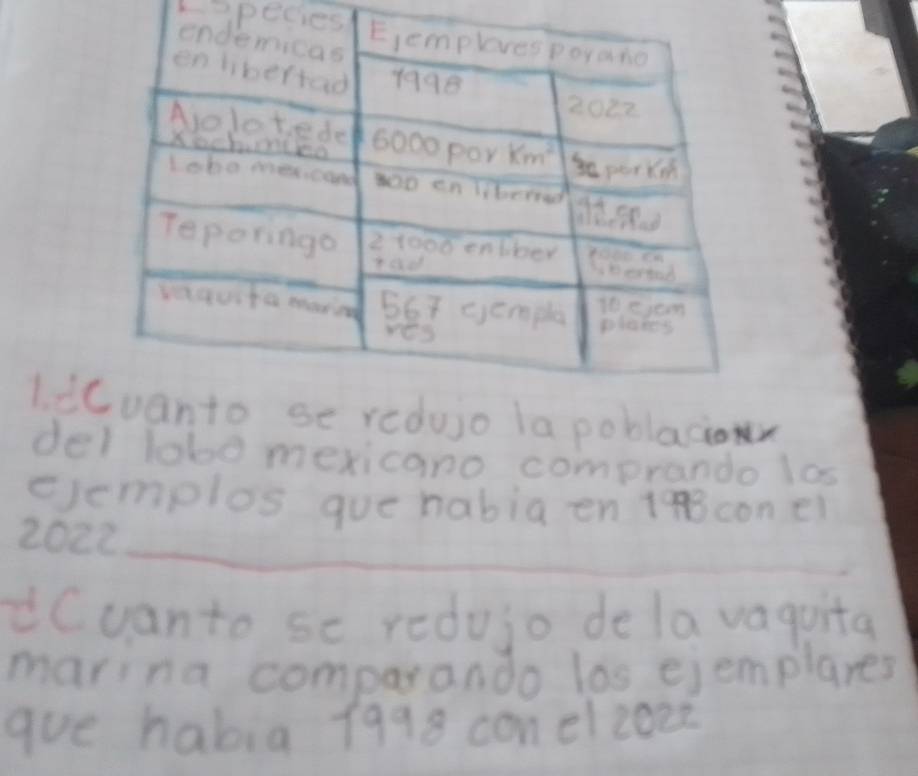 Especies Ejemplares por año
endemicas
en libertad 1998 2022
Ajolote de 6000 por Km² por Km²
Xochimilco
Lobo mexicano en libertad en libertad
Teporingo 21000 en liber en
tad libertad
vaquita marina 567 ejempla 10 ejem
res plares
1. ¿Cuanto se redujo la poblacion
del lobo mexicano comprando los
ejemplos que habia en 1998 con el
2022
¿Cuanto se redujo de la vaquita
marina comparando los ejemplares
que habia 1998 con el 2022